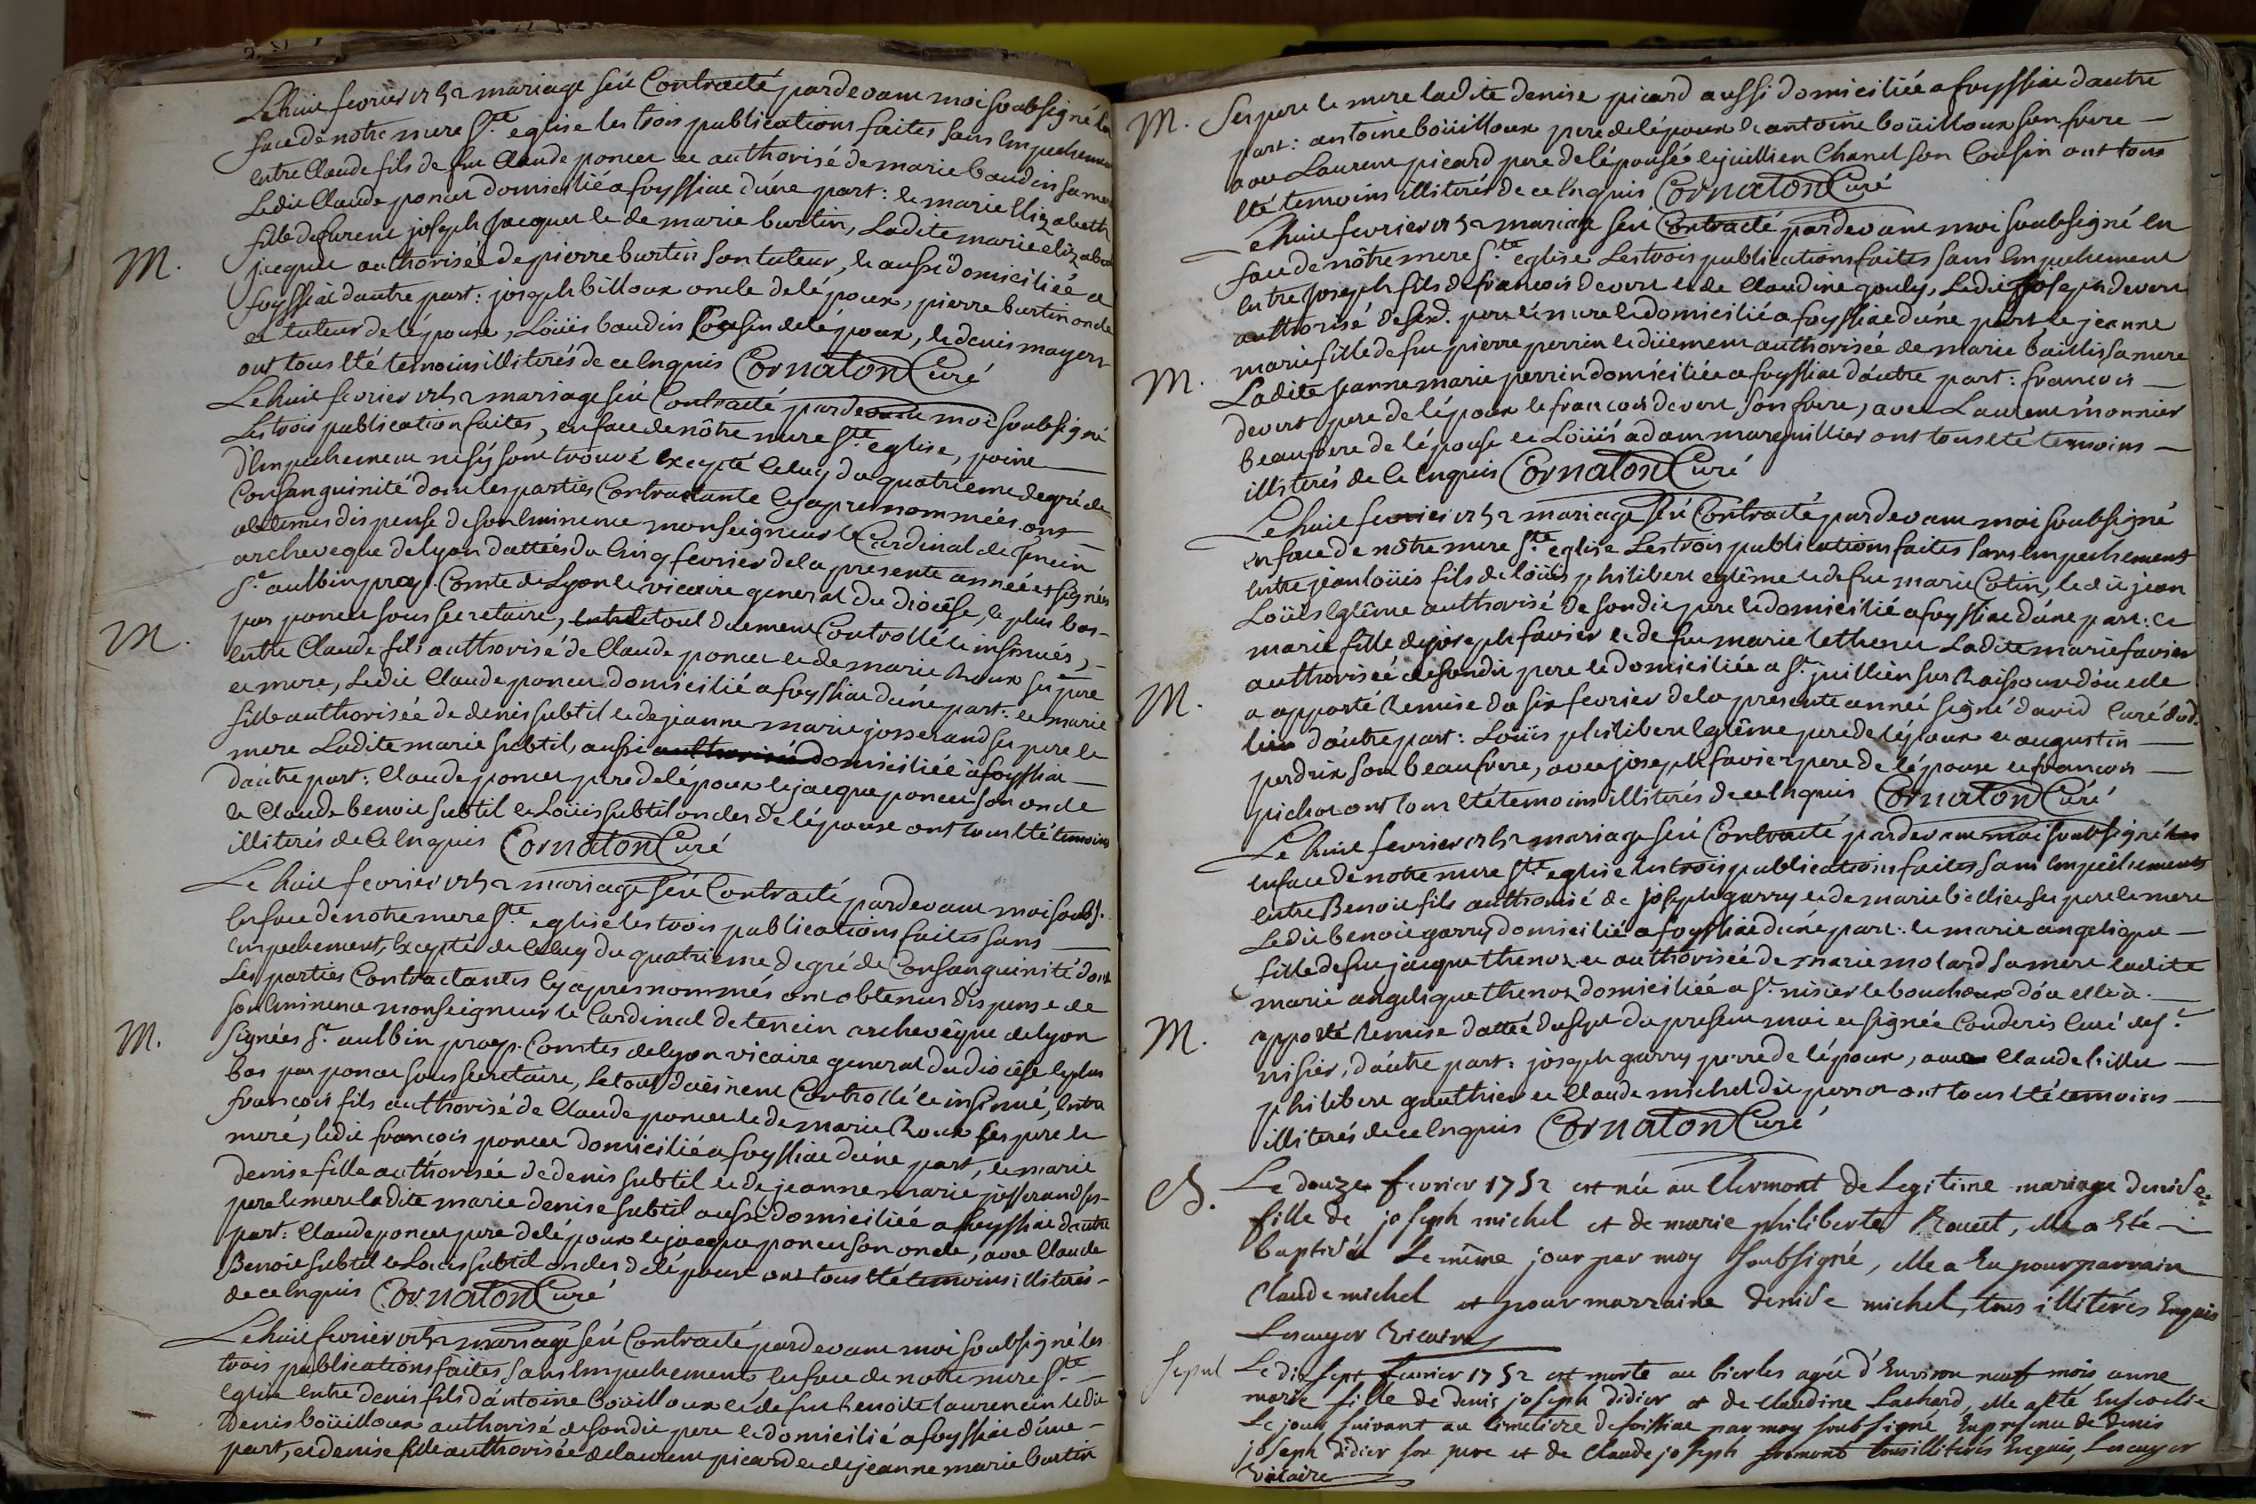 Le huit fevrier 1752 mariage füt Contracté pardevant moi soubsigné en
face de notre mere Ste eglise les trois publications faites sans Empechement
entre Claude fils de feu Claude poncet et authorisé de marie baudin sa mere
Ledit Claude poncet domicilié a foyssiat d'une part: et marie Elizabeth
fille defurent joseph Jacquet et de marie burtin, Ladite marie elizabeth
M. jacquet authorisée de pierre burtin son tuteur, et aussi domiciliée a
foyssiat dautre part: joseph billoux oncle de lépoux, pierre burtin oncle
et tuteur de lépouse, Loüis baudin Cousin de lépoux, et denis mayer
ont tous Eté temoins illiterés de ce Enquis Cornaton Curé
Le huit fevrier 1752 mariage füt Contracté pardevant moi soubsigné
Les trois publication faites, en face de nôtre mere Ste eglise, point
d'Empechement ne s'y sont trouvé Excepté Celuy du quatrieme degré de
Consanguinité dont les parties Contractante Cy apres nommées ont
obtenus dispense de son Eminence monseigneur le Cardinal de Tencin
archeveque de lyon dattées du Cinq fevrier de la presente année et signées
St aulbin Comte de Lyon et vicaire general du diocêse, et plus bas
M. par poncet sous secretaire, le tout duement Controllé et insinués,
entre Claude fils authorisé de Claude poncet et de marie Roux ses pere
et mere, Ledit Claude poncet domicilié a foyssiat d'une part: et marie
fille authorisée de denis subtil et de jeanne marie josserand ses pere et
mere Ladite marie subtil, aussi domiciliée a foyssiat
dautre part: Claude poncet pere de lépoux et jacque poncet son oncle
et Claude benoit subtil et Loüis subtil oncles de lépouse ont tous Eté temoins
illiterés de Ce Enquis Cornaton Curé
Le huit fevrier 1752 mariage füt Contracté pardevant moi soubs.
En face de notre mere Ste eglise les trois publications faites sans
empechement, Excepté de Celuy du quatrieme degré de Consanguinité dont
Les parties Contractantes Cy apres nommés ont obtenus dispense de
son Eminence monseigneur le Cardinal de tencin archevêque de lyon
M. signées St aulbin Comtes de lyon vicaire general du diocêse et plus
bas par poncet sous secretaire, le tout duëment Controllé et insinué, Entre
francois fils authorisé de Claude poncet et de marie Roux ses pere et
mere, ledit francois poncet domicilié a foyssiat d'une part, et marie
denise fille authorisée de denis subtil et de jeanne marie josserand ses
pere et mere ladite marie denise subtil aussi domiciliée a foyssiat dautre
part: Claude poncet pere de lépoux et jacque poncet son oncle, avec Claude
Benoit subtil et Loüis subtil oncles de lépouse ont tous Eté temoins illiterés
de ce Enquis Cornaton Curé
Le huit fevrier 1752 mariage füt Contracté pardevant moi soubsigné les
trois publications faites sans Empechement en face de notre mere Ste
Eglise entre denis fils d'antoine boüilloux et de feu benoite laurencin ledit
Denis boüilloux authorisé de sondit pere et domicilié a foyssiat d'une
part, et denise fille authorisée de laurent picard et de jeanne marie burtin
M. ses pere et mere ladite denise picard aussi domiciliée a foyssiat dautre
part: antoine boüilloux pere de lépoux et antoine boüilloux son frere
avec Laurent picard pere de lépousée et juillien Chanel son Cousin ont tous
Eté temoins illiterés de ce Enquis Cornaton Curé
Le huit fevrier 1752 mariage füt Contracté pardevant moi soubsigné en
face de nôtre mere Ste eglise Les trois publications faites sans Empechement
entre Joseph fils de francois devert et de Claudine gouly, Ledit joseph devert
authorisé desd. pere et mere et domicilié a foyssiat d'une part et jeanne
M. marie fille de feu pierre perrin et düement authorisée de marie baillis sa mere
Ladite jeanne marie perrin domiciliée a foyssiat dautre part: francois
devert pere de lépoux et francois devert son frere, avec Laurent monnier
beaufrere de lépouse et Loüis adam marguillier ont tous Eté temoins
illiterés de Ce Enquis Cornaton Curé
Le huit fevrier 1752 mariage füt Contracté pardevant moi soubsigné
en face de nôtre mere Ste eglise Les trois publications faites sans Empechement
entre jean loüis fils de loüis philibert eglême et de feu marie Cotin, ledit jean
Loüis Eglême authorisé de sondit pere et domicilié a foyssiat d'une part: et
marie fille de joseph favier et de feu marie Ladite marie favier
authorisée de sondit pere et domiciliée a St juillien sur Raissouze d'ou elle
M. a apporté Remise du six fevrier de la presente année signé david Curé dud.
lieu dautre part: Loüis philibert Eglême pere de lépoux et augustin
perdrix son beaufrere, avec joseph favier pere de lépouse et francois
pichat ont tous Eté temoins illiterés de ce Enquis Cornaton Curé
Le huit fevrier 1752 mariage füt Contracté pardevant moi soubsigné
en face de notre mere Ste eglise les trois publications faites sans Empechement
entre Benoit fils authorisé de joseph garry et de marie billiet ses pere et mere
Ledit benoit garry domicilié a foyssiat d'une part: et marie angelique
fille de feu jacque thenoz et authorisée de marie molard sa mere ladite
marie angelique thenoz domiciliée a St nisier le bouchoux d'ou elle a
M. apporté Remise dattée du sept du present moi et signée Couderis Curé de St
nisier, dautre part: joseph garry pere de lépoux, avec Claude billiet
philibert gauthier et Claude michel dit perrot ont tous Eté temoins
illiterés de ce Enquis Cornaton Curé
B. Le douze fevrier 1752 est née au Clermont de Legitime mariage denise
fille de joseph michel et de marie philiberte Rouet, elle a Eté
baptisée Le même jour par moy soubsigné, elle a Eu pour parrain
Claude michel et pour marraine denise michel, tous illitérés Enquis
Lescuyer Vicaire
Sepul Le dix sept fevrier 1752 est morte au agée d'Environ neuf mois anne
marie fille de denis joseph didier et de Claudine Lachard, elle a été Ensevelie
Le jour suivant au Cimetiere de foissiat par moy soubsigné En presence de denis
joseph didier son pere et de Claude joseph fromont tous illiterés Enquis, Lescuyer
Vicaire